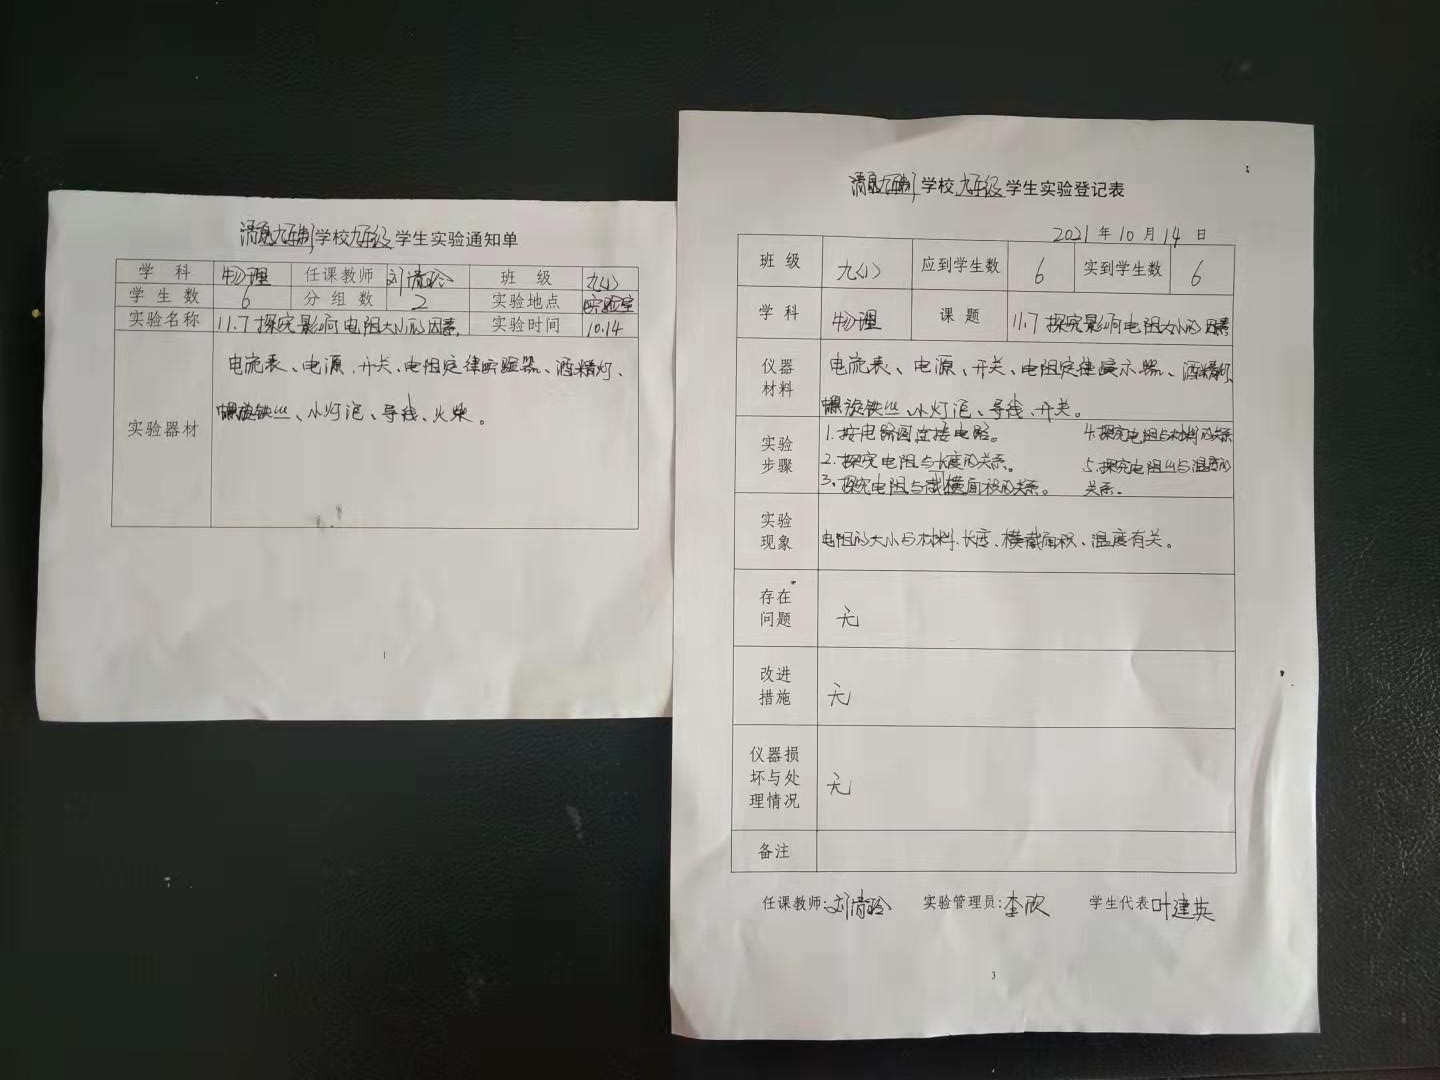 清凉九年制学校九年级学生实验通知单
学 科 物理 任课教师 刘清玲 班 级 九(1)
学 生 数 6 分 组 数 2 实验地点 实验室
实验名称 11.7探究影响电阻大小的因素 实验时间 10.14
实验器材
电流表、电源、开关、电阻定律实验器、酒精灯、
螺旋铁丝、小灯泡、导线、火柴。
1
学校九年级学生实验登记表
2021 年 10 月 14 日
班 级 九(1) 应到学生数 6 实到学生数 6
学 科 物理 课 题 11.7探究影响电阻大小的因素
仪器
材料
电流表、电源、开关、电阻定律演示器、酒精灯、
螺旋铁丝、小灯泡、导线、开关。
实验
步骤
1.按电路图连接电路。
2.探究电阻与长度的关系。
3.探究电阻与截横面积的关系。
4.探究电阻与材料的关系
5.探究电阻丝与温度的
关系。
实验
现象
电阻的大小与材料、长度、横截面积、温度有关。
存在
问题
无
改进
措施
无
仪器损
坏与处
理情况
无
备注
任课教师:刘清玲 实验管理员:李欣 学生代表 叶建英
3